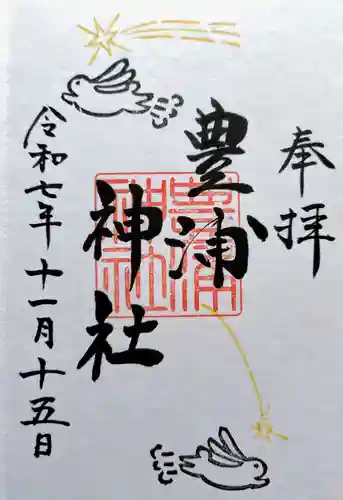 奉拝
豊浦
神社
豊浦
神社
令和七年十一月十五日